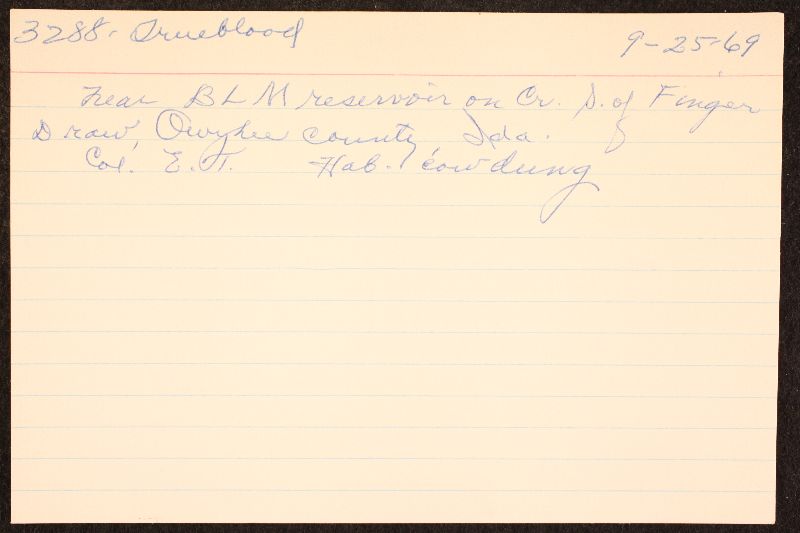 3288. Trueblood 9-25-69
near BLM reservoir on Cr. S. of Finger
Draw, Owyhee county, Ida.
Col. E. T. Hab. cow dung